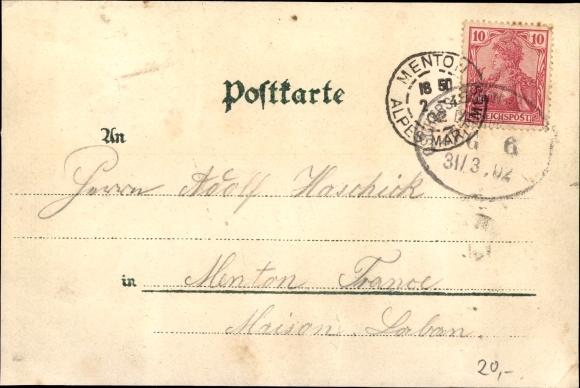 10 10
REICHSPOST
MENTON
18 50
2
ALPES MARITIMES
Postkarte
G 6
31/3.02
An
Herrn Adolf Haschick
in Menton France.
Maison Laban.
20,-